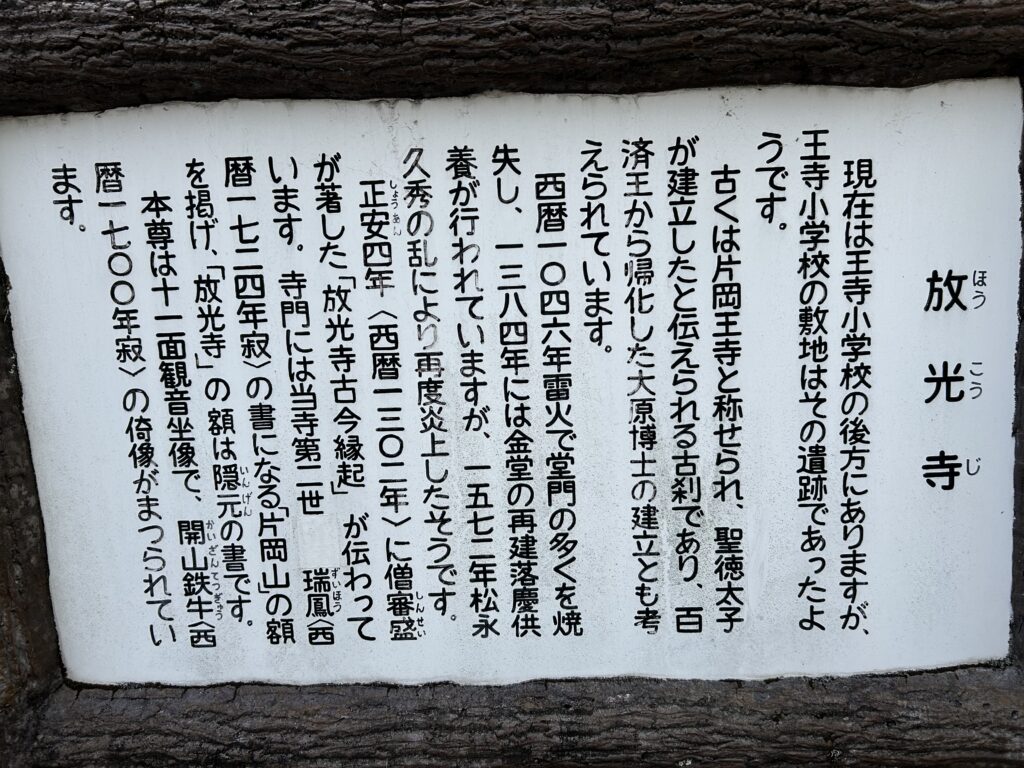 放光寺
ほうこうじ
現在は王寺小学校の後方にありますが、
王寺小学校の敷地はその遺跡であったよ
うです。
古くは片岡王寺と称せられ、聖徳太子
が建立したと伝えられる古刹であり、百
済王から帰化した大原博士の建立とも考
えられています。
西暦一〇四六年雷火で堂門の多くを焼
失し、一三八四年には金堂の再建落慶供
養が行われていますが、一五七二年松永
久秀の乱により再度炎上したそうです。
正安四年〈西暦一三〇二年〉に僧審盛
しょうあん
しんせい
が著した「放光寺古今縁起」が伝わって
います。寺門には当寺第二世 瑞鳳〈西
ずいほう
暦一七二四年寂〉の書になる「片岡山」の額
を掲げ、「放光寺」の額は隠元の書です。
いんげん
本尊は十一面観音坐像で、開山鉄牛〈西
かいざんてつぎゅう
暦一七〇〇年寂〉の倚像がまつられてい
ます。